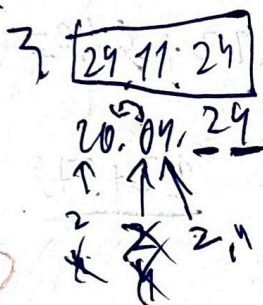 3. 29.11.24
20.04.29
2 2 2,4